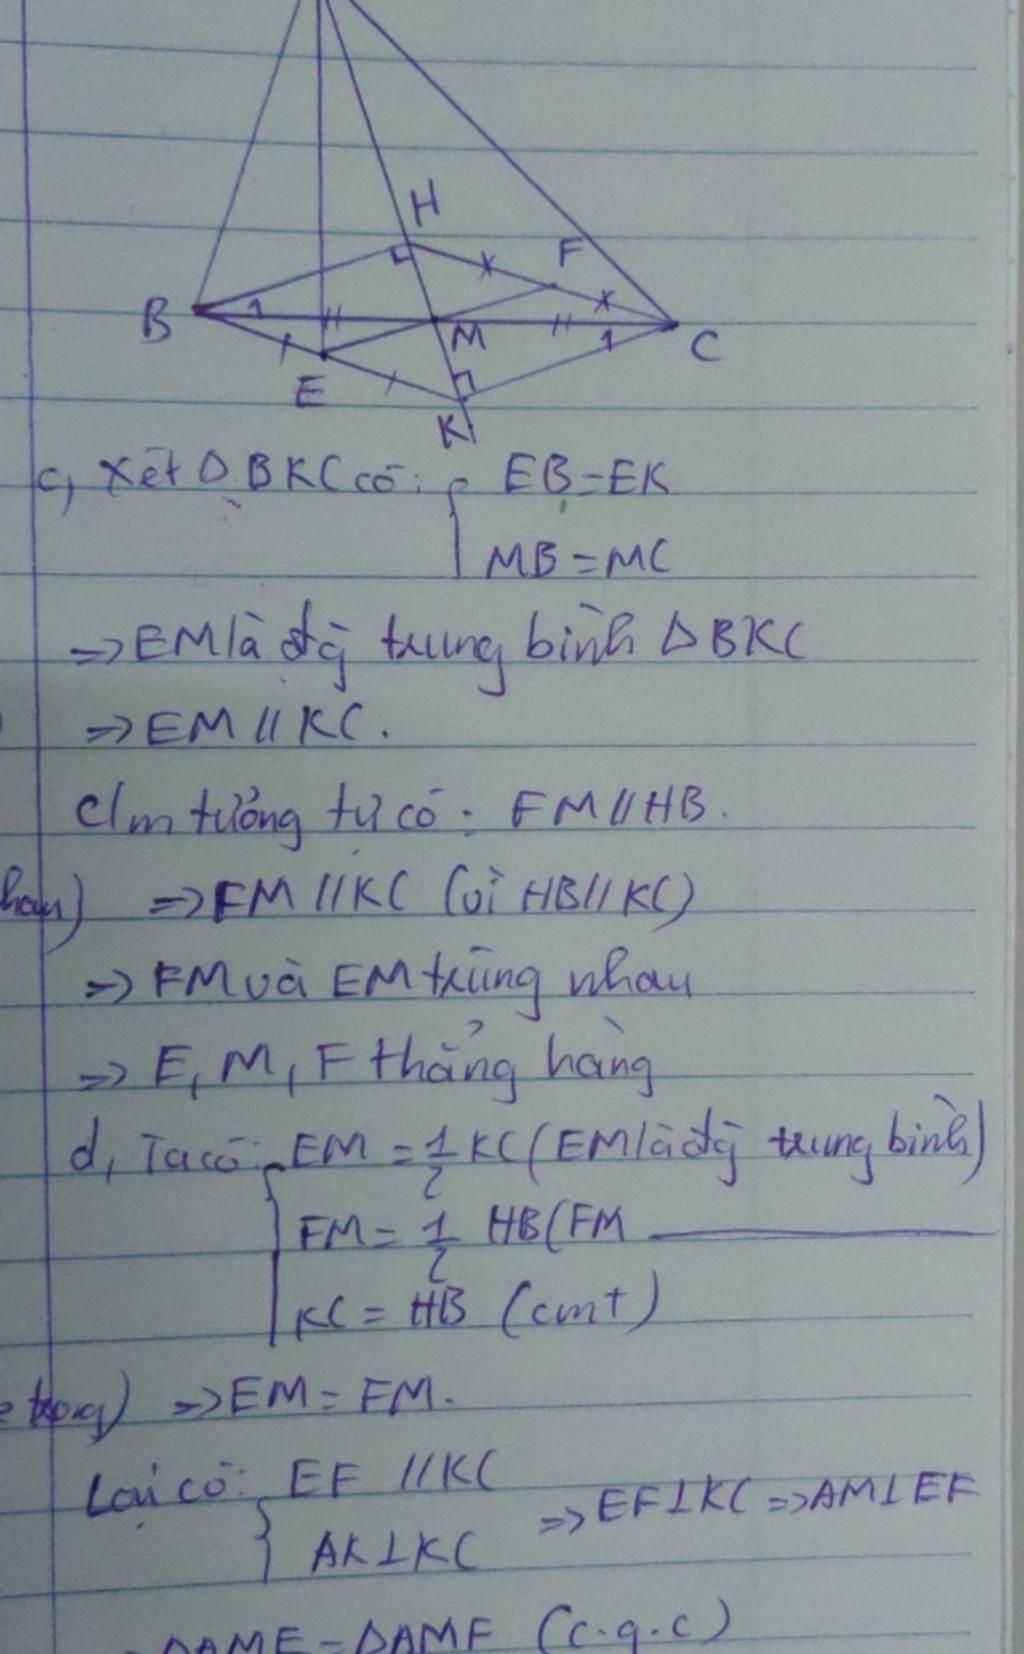 H
F
B
1
M
1
C
E
K
c, Xét Δ BKC có: EB = EK
MB = MC
=> EM là đg trung bình Δ BKC
=> EM // KC.
C/m tương tự có: FM // HB.
=> FM // KC (vì HB // KC)
=> FM và EM trùng nhau
=> E, M, F thẳng hàng
d, Ta có: EM = 1/2 KC (EM là đg trung bình)
FM = 1/2 HB (FM
KC = HB (cmt)
=> EM = FM.
Lại có: EF // KC
AK ⊥ KC => EF ⊥ KC => AM ⊥ EF
ΔAME = ΔAMF (c.g.c)